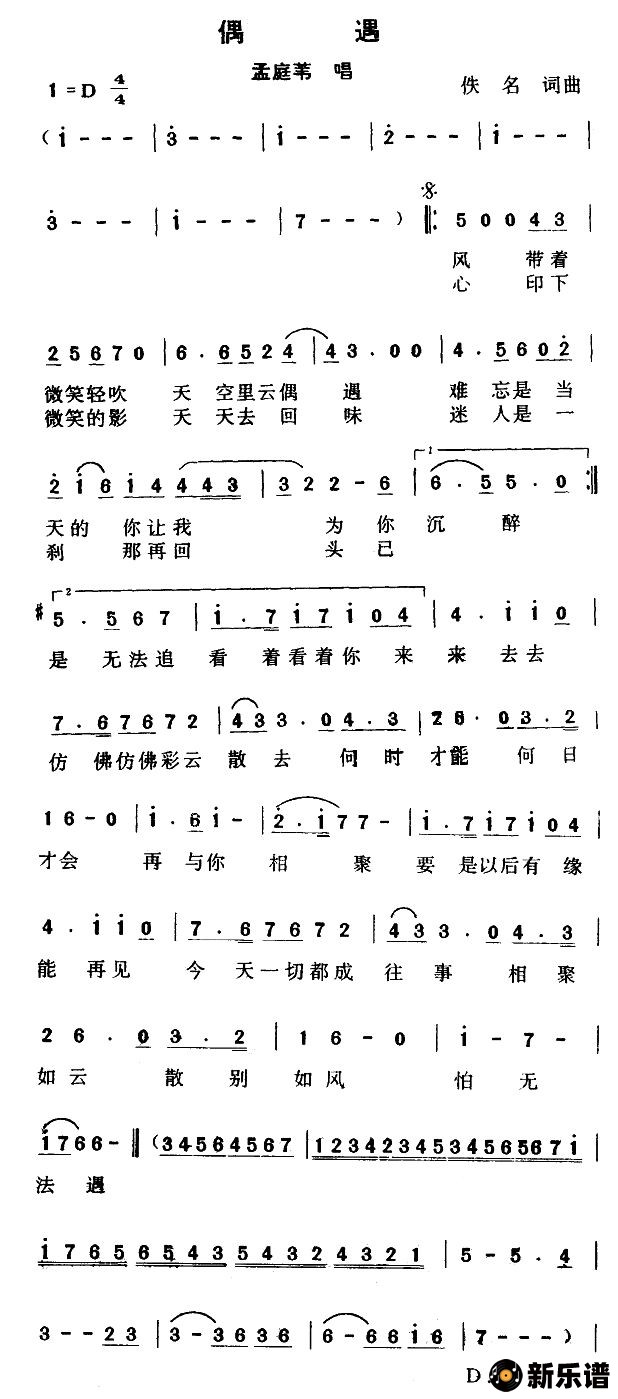 偶 遇
孟庭苇 唱
1=D 4/4
佚 名 词曲
(i - - - | 3 - - - | i - - - | 2 - - - | i - - - |
3 - - - | i - - - | 7 - - - ) ‖: 5 0 0 4 3 |
风 带着
心 印下
2 5 6 7 0 | 6 . 6 5 2 4 | 4 3 . 0 0 | 4 . 5 6 0 2 |
微笑轻吹 天 空里云偶 遇 难 忘是 当
微笑的影 天 天去 回 味 迷 人是 一
2 i 6 i 4 4 4 3 | 3 2 2 - 6 | 6 . 5 5 . 0 :‖
天的 你让我 为 你 沉 醉
刹 那再回 头 已
#5 . 5 6 7 | i . 7 i 7 i 0 4 | 4 . i i 0 |
是 无法追 看 着看着你 来 来 去去
7 . 6 7 6 7 2 | 4 3 3 . 0 4 . 3 | 2 6 . 0 3 . 2 |
仿 佛仿佛彩云 散 去 何 时 才能 何 日
1 6 - 0 | i . 6 i - | 2 . i 7 7 - | i . 7 i 7 i 0 4 |
才会 再 与你 相 聚 要 是以后有 缘
4 . i i 0 | 7 . 6 7 6 7 2 | 4 3 3 . 0 4 . 3 |
能 再见 今 天一切都成 往 事 相 聚
2 6 . 0 3 . 2 | 1 6 - 0 | i - 7 - |
如云 散 别 如风 怕 无
i 7 6 6 - ‖ (3 4 5 6 4 5 6 7 | 1 2 3 4 2 3 4 5 3 4 5 6 5 6 7 i |
法 遇
i 7 6 5 6 5 4 3 5 4 3 2 4 3 2 1 | 5 - 5 . 4 |
3 - - 2 3 | 3 - 3 6 3 6 | 6 - 6 6 i 6 | 7 - - - ) |
D
新乐谱